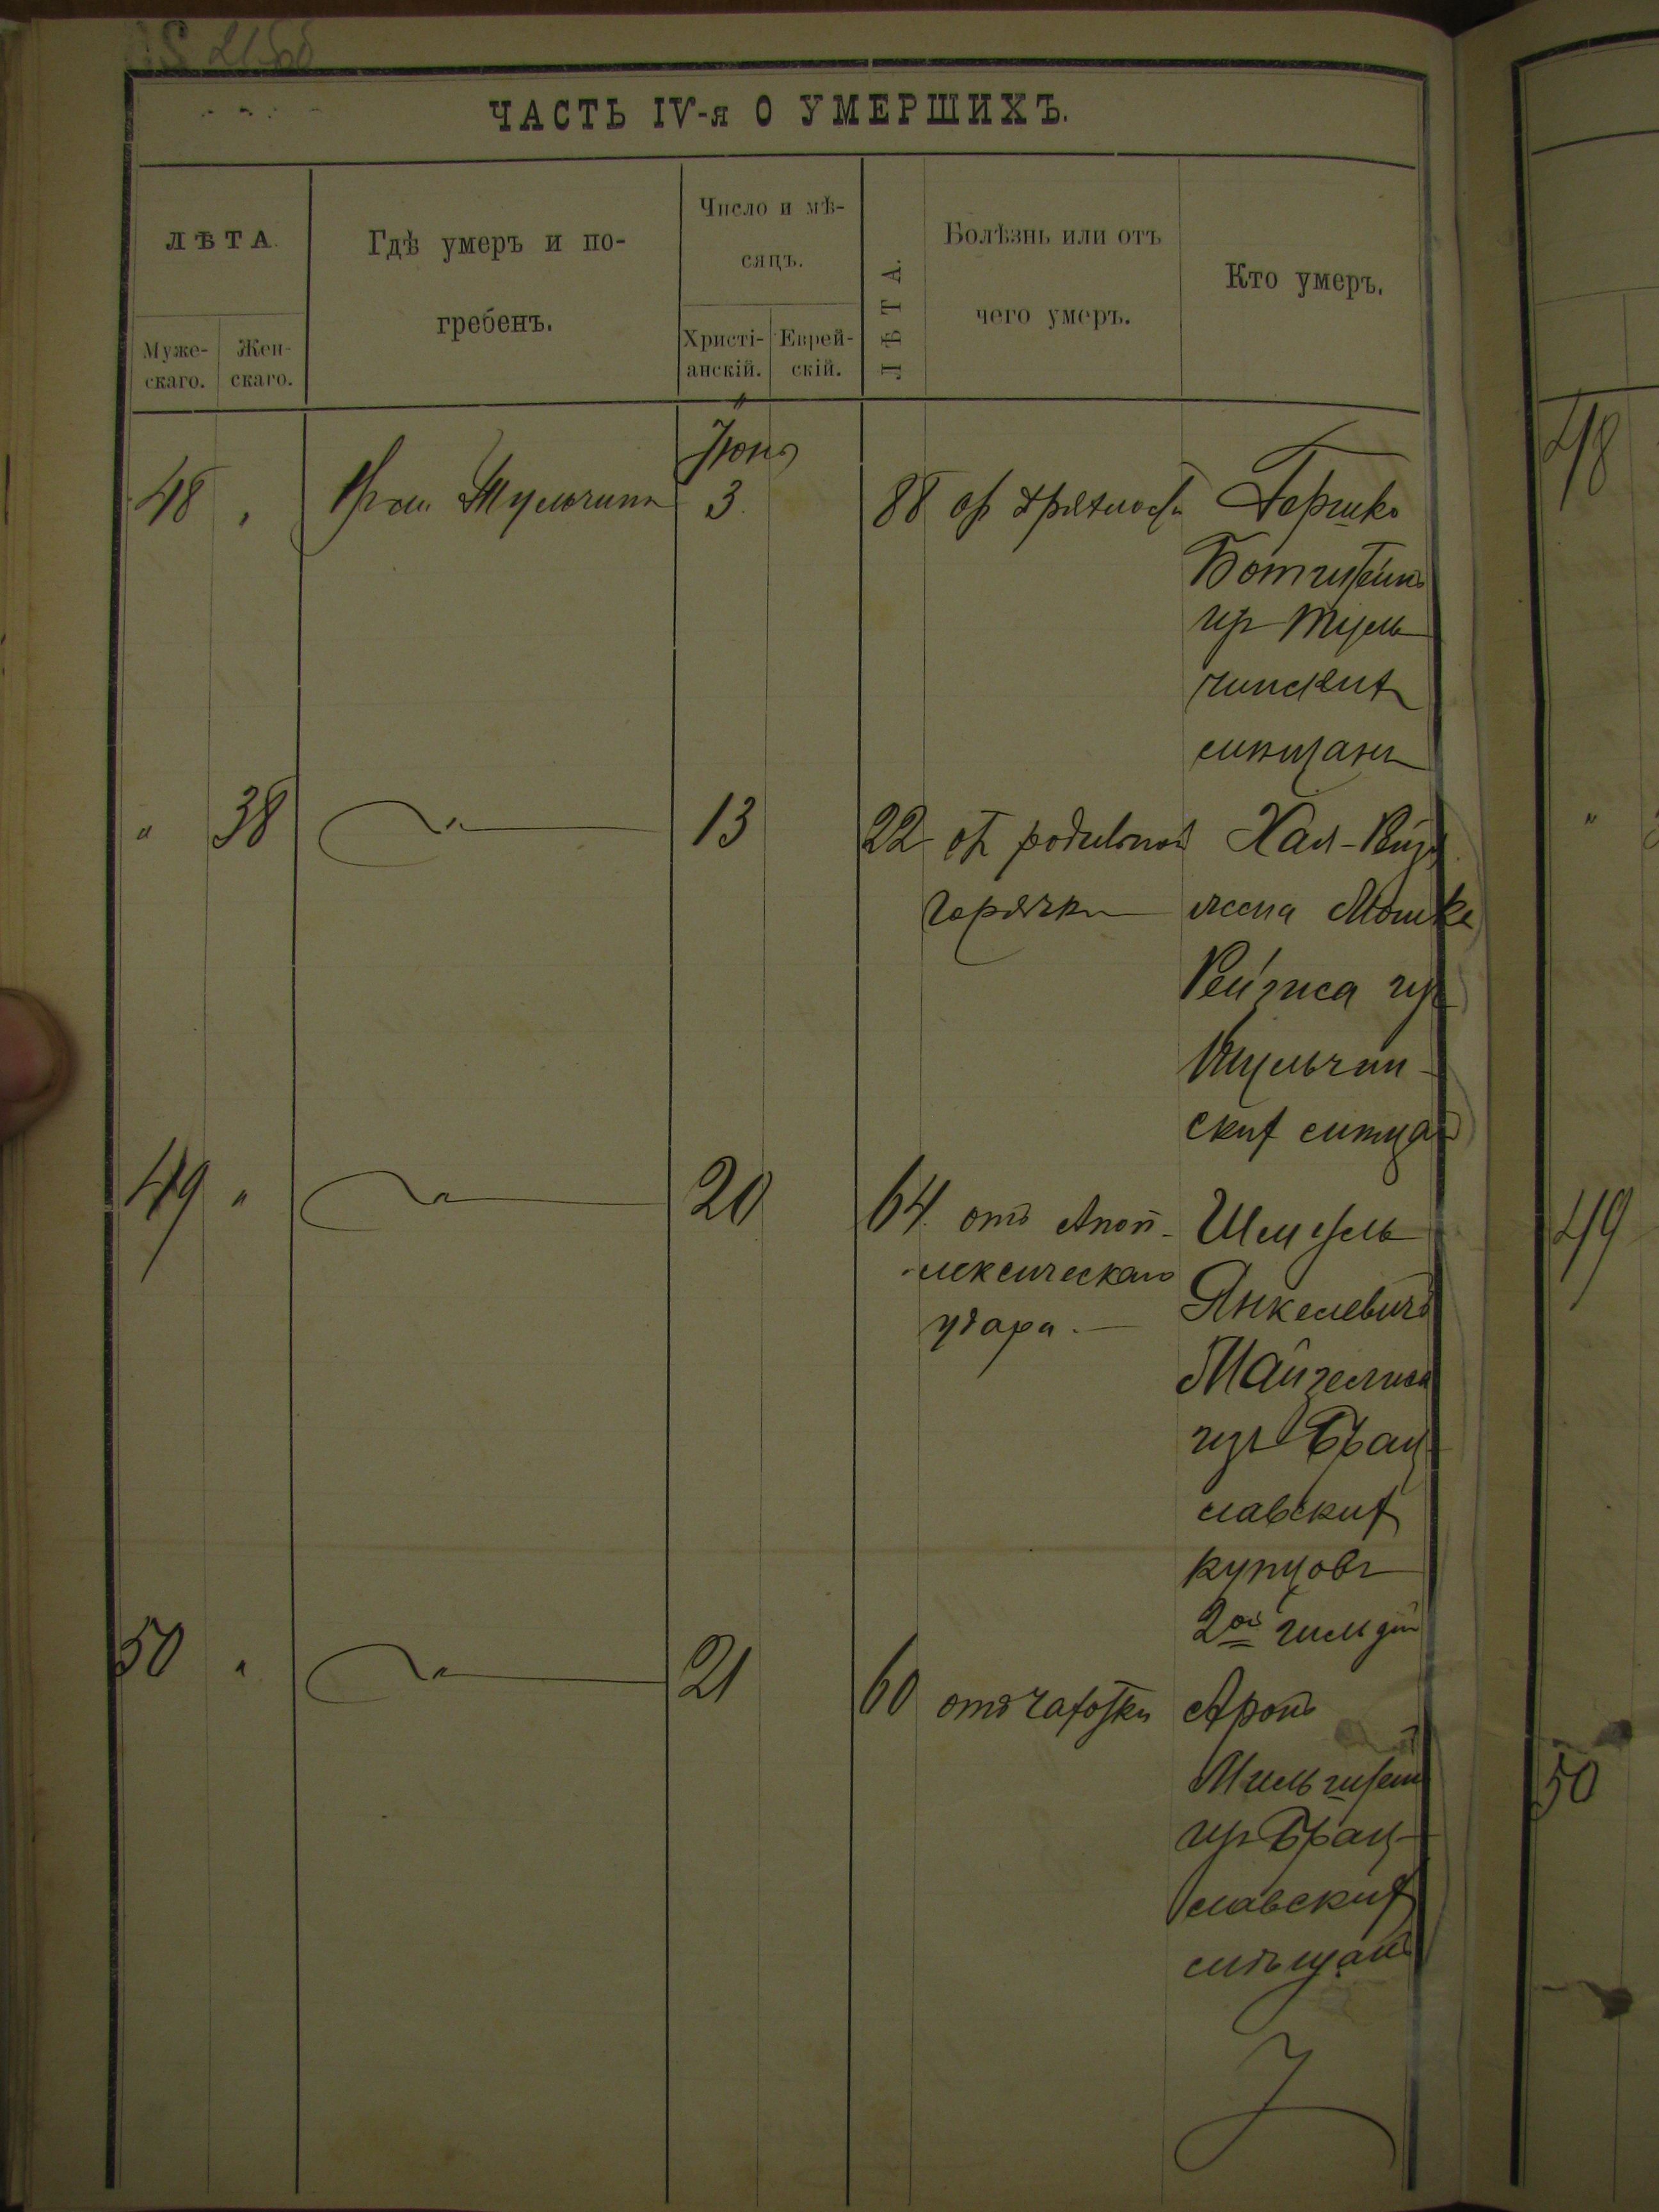 ЧАСТЬ IV-я О УМЕРШИХЪ.
ЛѢТА.
Муже-
скаго.
Жен-
скаго.
Гдѣ умеръ и по-
гребенъ.
Число и мѣ-
сяцъ.
Христі-
анскій.
Еврей-
скій.
ЛѢТА.
Болѣзнь или отъ
чего умеръ.
Кто умеръ.
Іюнь
48 " Тульчинѣ 3 88 от дряхлости Гершко
Ботштейнъ
изъ Туль
чинскихъ
мѣщанъ
" 38 " 13 22 отъ родильной Хая-
горячки жена Мошке
Рейзиса изъ
Тульчин-
скихъ мѣщан
49 " " 20 64 отъ Апоп-
лексическаго
удара.
Шмуль
Янкелевичъ
Майзелиса
изъ Брац-
лавскихъ
купцовъ
2ой гильдіи
50 " " 21 60 отъ чахотки Аронъ
Мильштейн
изъ Брац-
лавскихъ
мѣщанъ
48
"
49
50